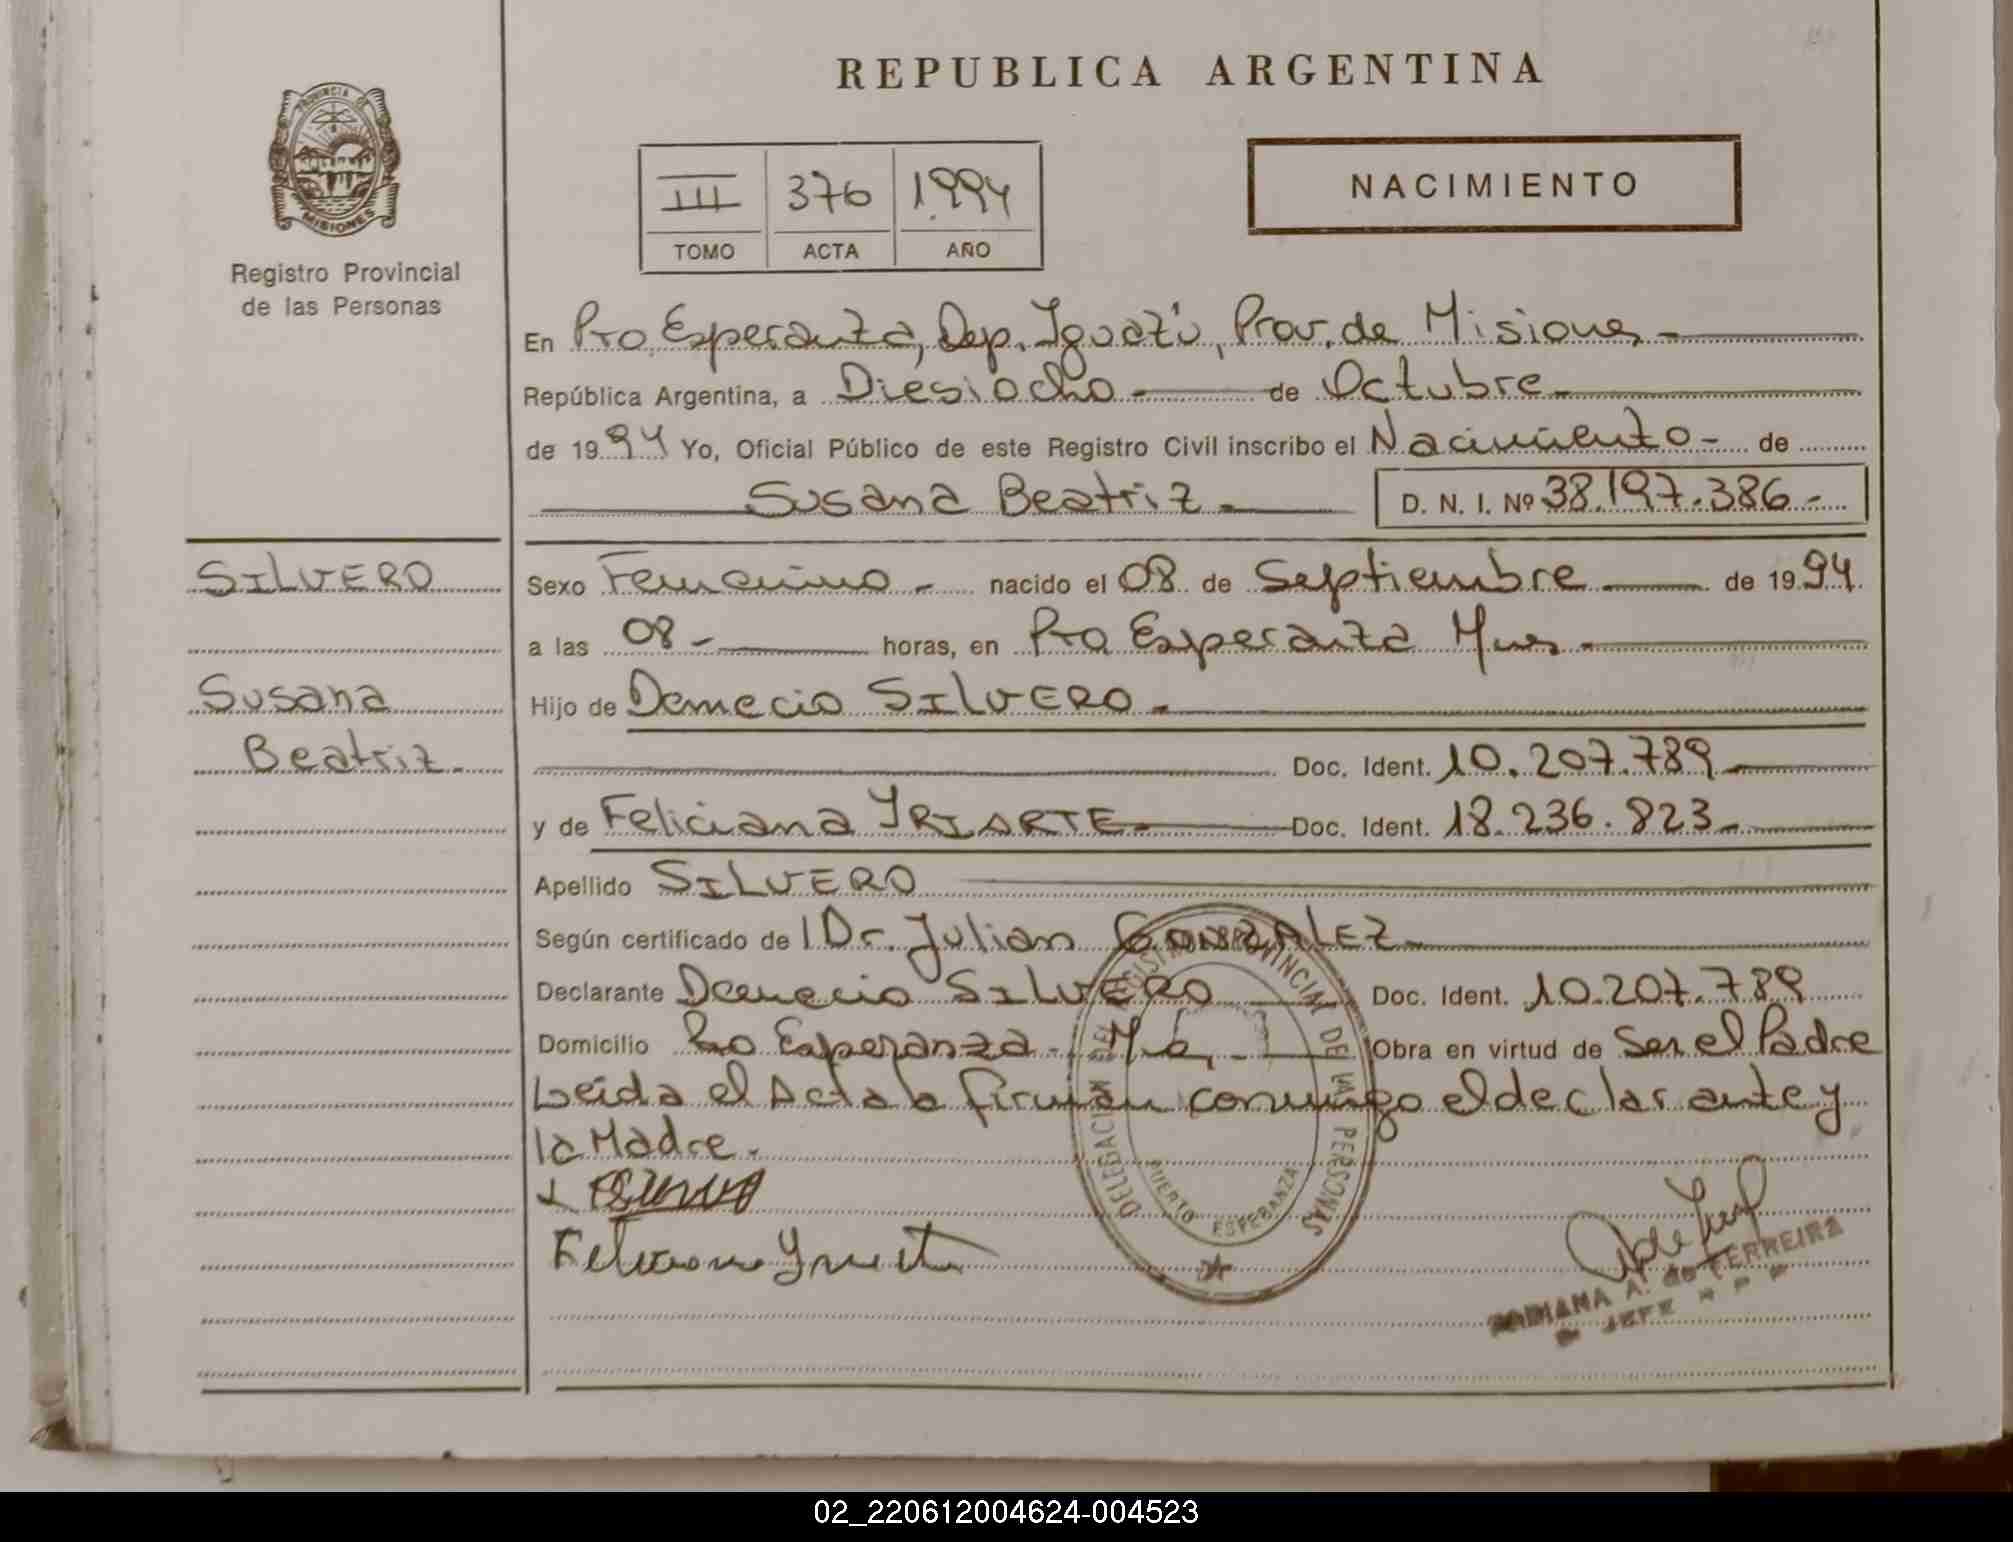 REPUBLICA ARGENTINA
PROVINCIA DE
MISIONES
Registro Provincial
de las Personas
III 376 1.994
TOMO ACTA AÑO
NACIMIENTO
En Pto. Esperanza, Dep. Iguazú, Prov. de Misiones.-
República Argentina, a Diesiocho - de Octubre.-
de 1994 Yo, Oficial Público de este Registro Civil inscribo el Nacimiento - de
Susana Beatriz.- D. N. I. Nº 38.197.386.-
SILVERO
Sexo Femenino.- nacido el 08 de Septiembre.- de 1994.
a las 08.- horas, en Pto Esperanza Mnes.-
Susana
Hijo de Demecio SILVERO.-
Beatriz.-
Doc. Ident. 10.207.789.-
y de Feliciana IRIARTE.- Doc. Ident. 18.236.823.-
Apellido SILVERO
Según certificado del Dr. Julian GONZALEZ.-
Declarante Demecio SILVERO Doc. Ident. 10.207.789
Domicilio Pto Esperanza.- Obra en virtud de Ser el Padre
Leida el Acta la firman conmigo el declarante y
la Madre.
Feliciana Iriarte
DELEGACION DEL REGISTRO PROVINCIAL DE LAS PERSONAS
PUERTO ESPERANZA
A. de FERREIRA
JEFE
02_220612004624-004523